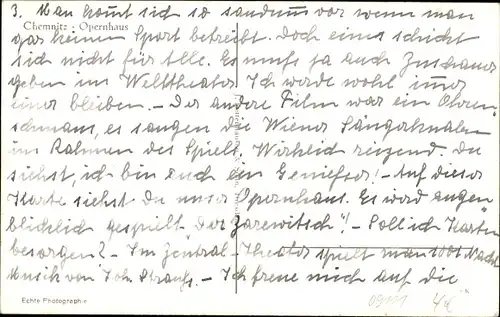 3. Man kom̄t sich so sandum̄ vor wenn man
gar keinen Sport betreibt. Doch eins schickt
Chemnitz - Opernhaus
sich nicht für Alle. Es muß ja auch Zuschauer
geben im Welttheater. Ich werde wohl im̄er
einer bleiben. - Der andere Film war ein Ohren-
schmaus, es sangen die Wiener Sängerknaben
im Rahmen des Spiels. Wirklich reizend. Du
siehst, ich bin auch ein Genießer! - Auf dieser
Karte siehst Du unser Opernhaus. Es wird augen-
blicklich gespielt "Der Zarewitsch"! - Soll ich Karten
besorgen? - Im Zentral-Theater spielt man 1001 Nacht
Musik von Joh. Strauß. - Ich freue mich auf die
Echte Photographie